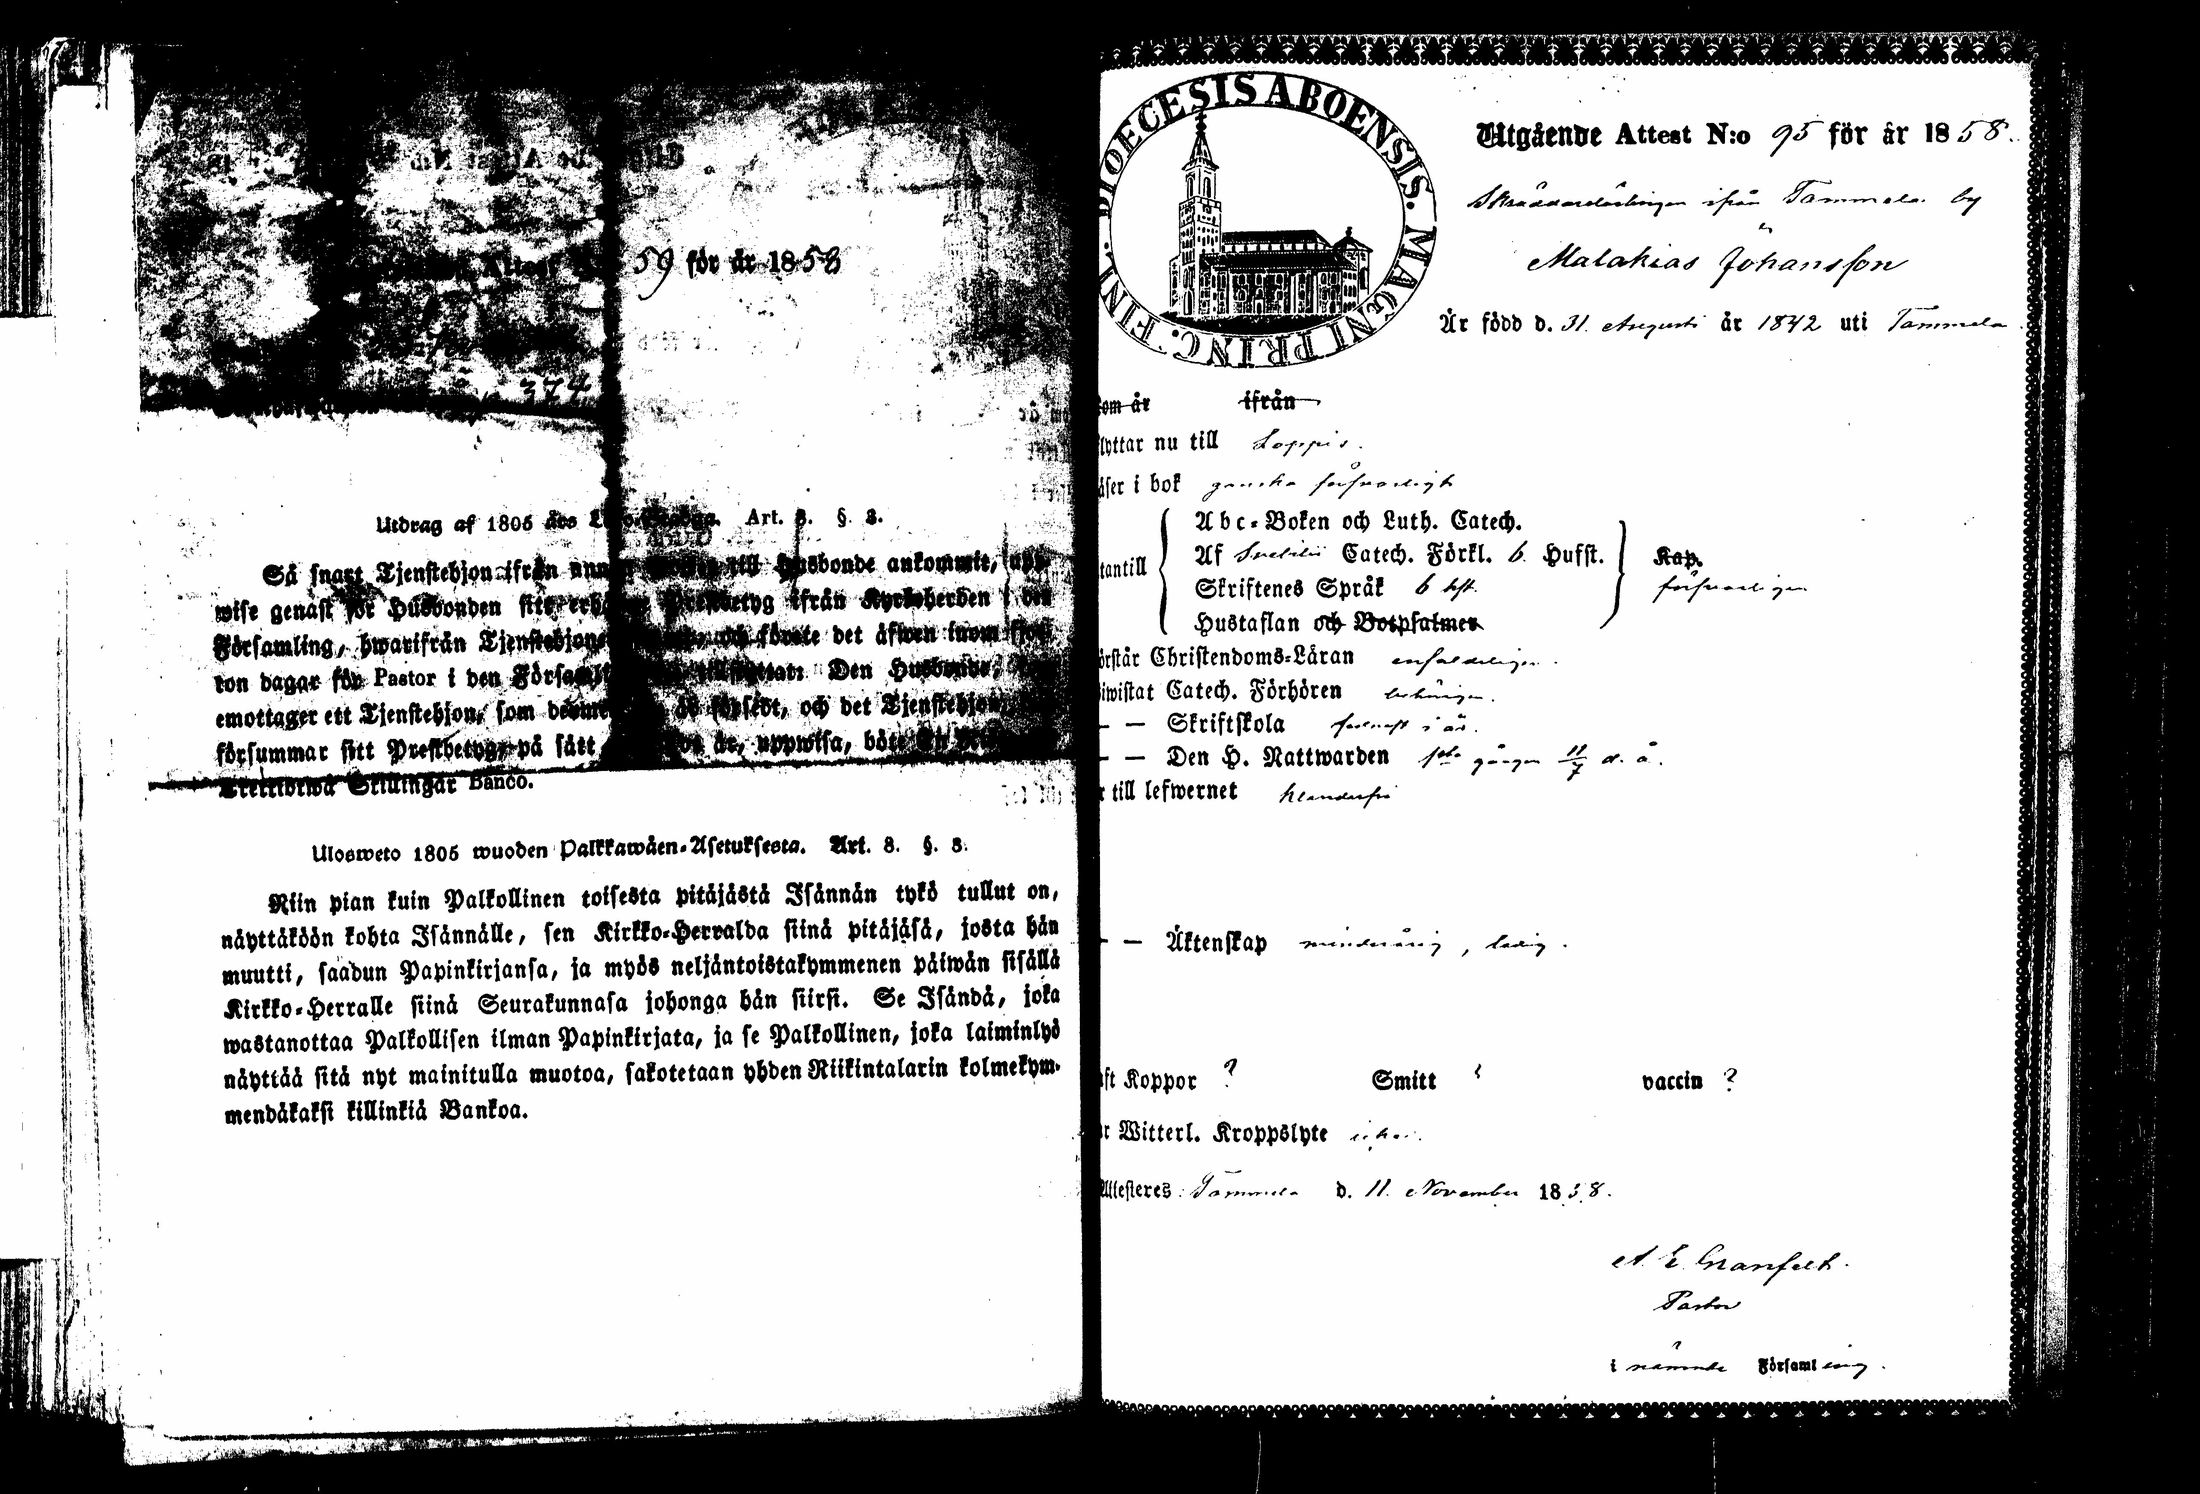 Attest N 59 för år 1858
374
Utdrag af 1805 års Lego-Stadga. Art. 8. §. 3.
Så snart Tjenstehjon ifrån annan till Husbonde ankommit, upp-
wise genast för Husbonden sitt Prestbetyg ifrån Kyrkoherden i den
Församling, hwarifrån Tjenstehjonet och förete det äfwen inom fjor-
ton dagar för Pastor i den Församling Den Husbonde,
emottager ett Tjenstehjon, som dermed ej är försedt, och det Tjenstehjon,
försummar sitt Prestbetyg, på sätt är, uppwisa, böte
Trettiotwå Skillingar Banco.
Ulosweto 1805 wuoden Palkkawäen-Asetuksesta. Art. 8. §. 3.
Niin pian kuin Palkollinen toisesta pitäjästä Isännän tykö tullut on,
näyttäköön kohta Isännälle, sen Kirkko-Herralda siinä pitäjäsä, josta hän
muutti, saadun Papinkirjansa, ja myös neljäntoistakymmenen päiwän sisällä
Kirkko-Herralle siinä Seurakunnasa johonga hän siirsi. Se Isändä, joka
wastanottaa Palkollisen ilman Papinkirjata, ja se Palkollinen, joka laiminlyö
näyttää sitä nyt mainitulla muotoa, sakotetaan yhden Riikintalarin kolmekym-
mendäkaksi killinkiä Bankoa.
DIOECESIS ABOENSIS. MAGNI PRINC. FINL.
Utgående Attest N:o 95 för år 1858.
Skräddarelärlingen ifrån Tammela by
Malakias Johansson
Är född d. 31. Augusti år 1842 uti Tammela.
som år ifrån
lyttar nu till Loppis.
äser i bok ganska försvarligt
Abc-Boken och Luth. Catech.
tantill Af Svebilii Catech. Förkl. 6. Hufst. Kap.
Skriftenes Språk 6 hst. försvarligen
Hustaflan och Botpsalmer
örstår Christendoms-Läran enfaldeligen.
iwistat Catech. Förhören behörigen.
— — Skriftskola i år.
— — Den H. Nattwarden 1sta gången 11/7 d. å.
r till lefwernet klanderfri
— — Äktenskap minderårig, ledig.
ft Koppor ? Smitt ? vaccin ?
r Witterl. Kroppslyte icke.
Attesteres: Tammela d. 11. November 1858.
A. E. Granfelt.
Pastor
i nämnde Församling.